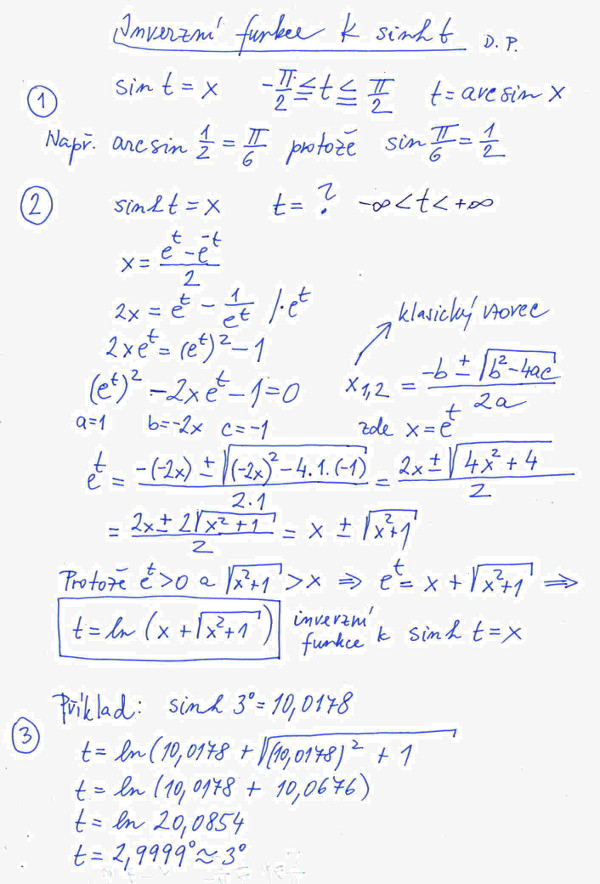 Inverzní funkce k sinh t D.P.
① sin t = x -π/2 ≤ t ≤ π/2 t = arcsin x
Např. arcsin 1/2 = π/6 protože sin π/6 = 1/2
② sinh t = x t = ? -∞ < t < +∞
x = (e^t - e^-t)/2
2x = e^t - 1/e^t /·e^t
klasický vzorec
2xe^t = (e^t)² - 1
(e^t)² - 2xe^t - 1 = 0 x1,2 = (-b ± √(b² - 4ac))/2a
a=1 b=-2x c=-1 zde x = e^t
e^t = (-(-2x) ± √((-2x)² - 4.1.(-1)))/2.1 = (2x ± √(4x² + 4))/2
= (2x ± 2√(x² + 1))/2 = x ± √(x²+1)
Protože e^t > 0 a √(x²+1) > x ⇒ e^t = x + √(x²+1) ⇒
t = ln (x + √(x²+1)) inverzní funkce k sinh t = x
Příklad: sinh 3° = 10,0178
③ t = ln (10,0178 + √((10,0178)² + 1
t = ln (10,0178 + 10,0676)
t = ln 20,0854
t = 2,9999° ≈ 3°